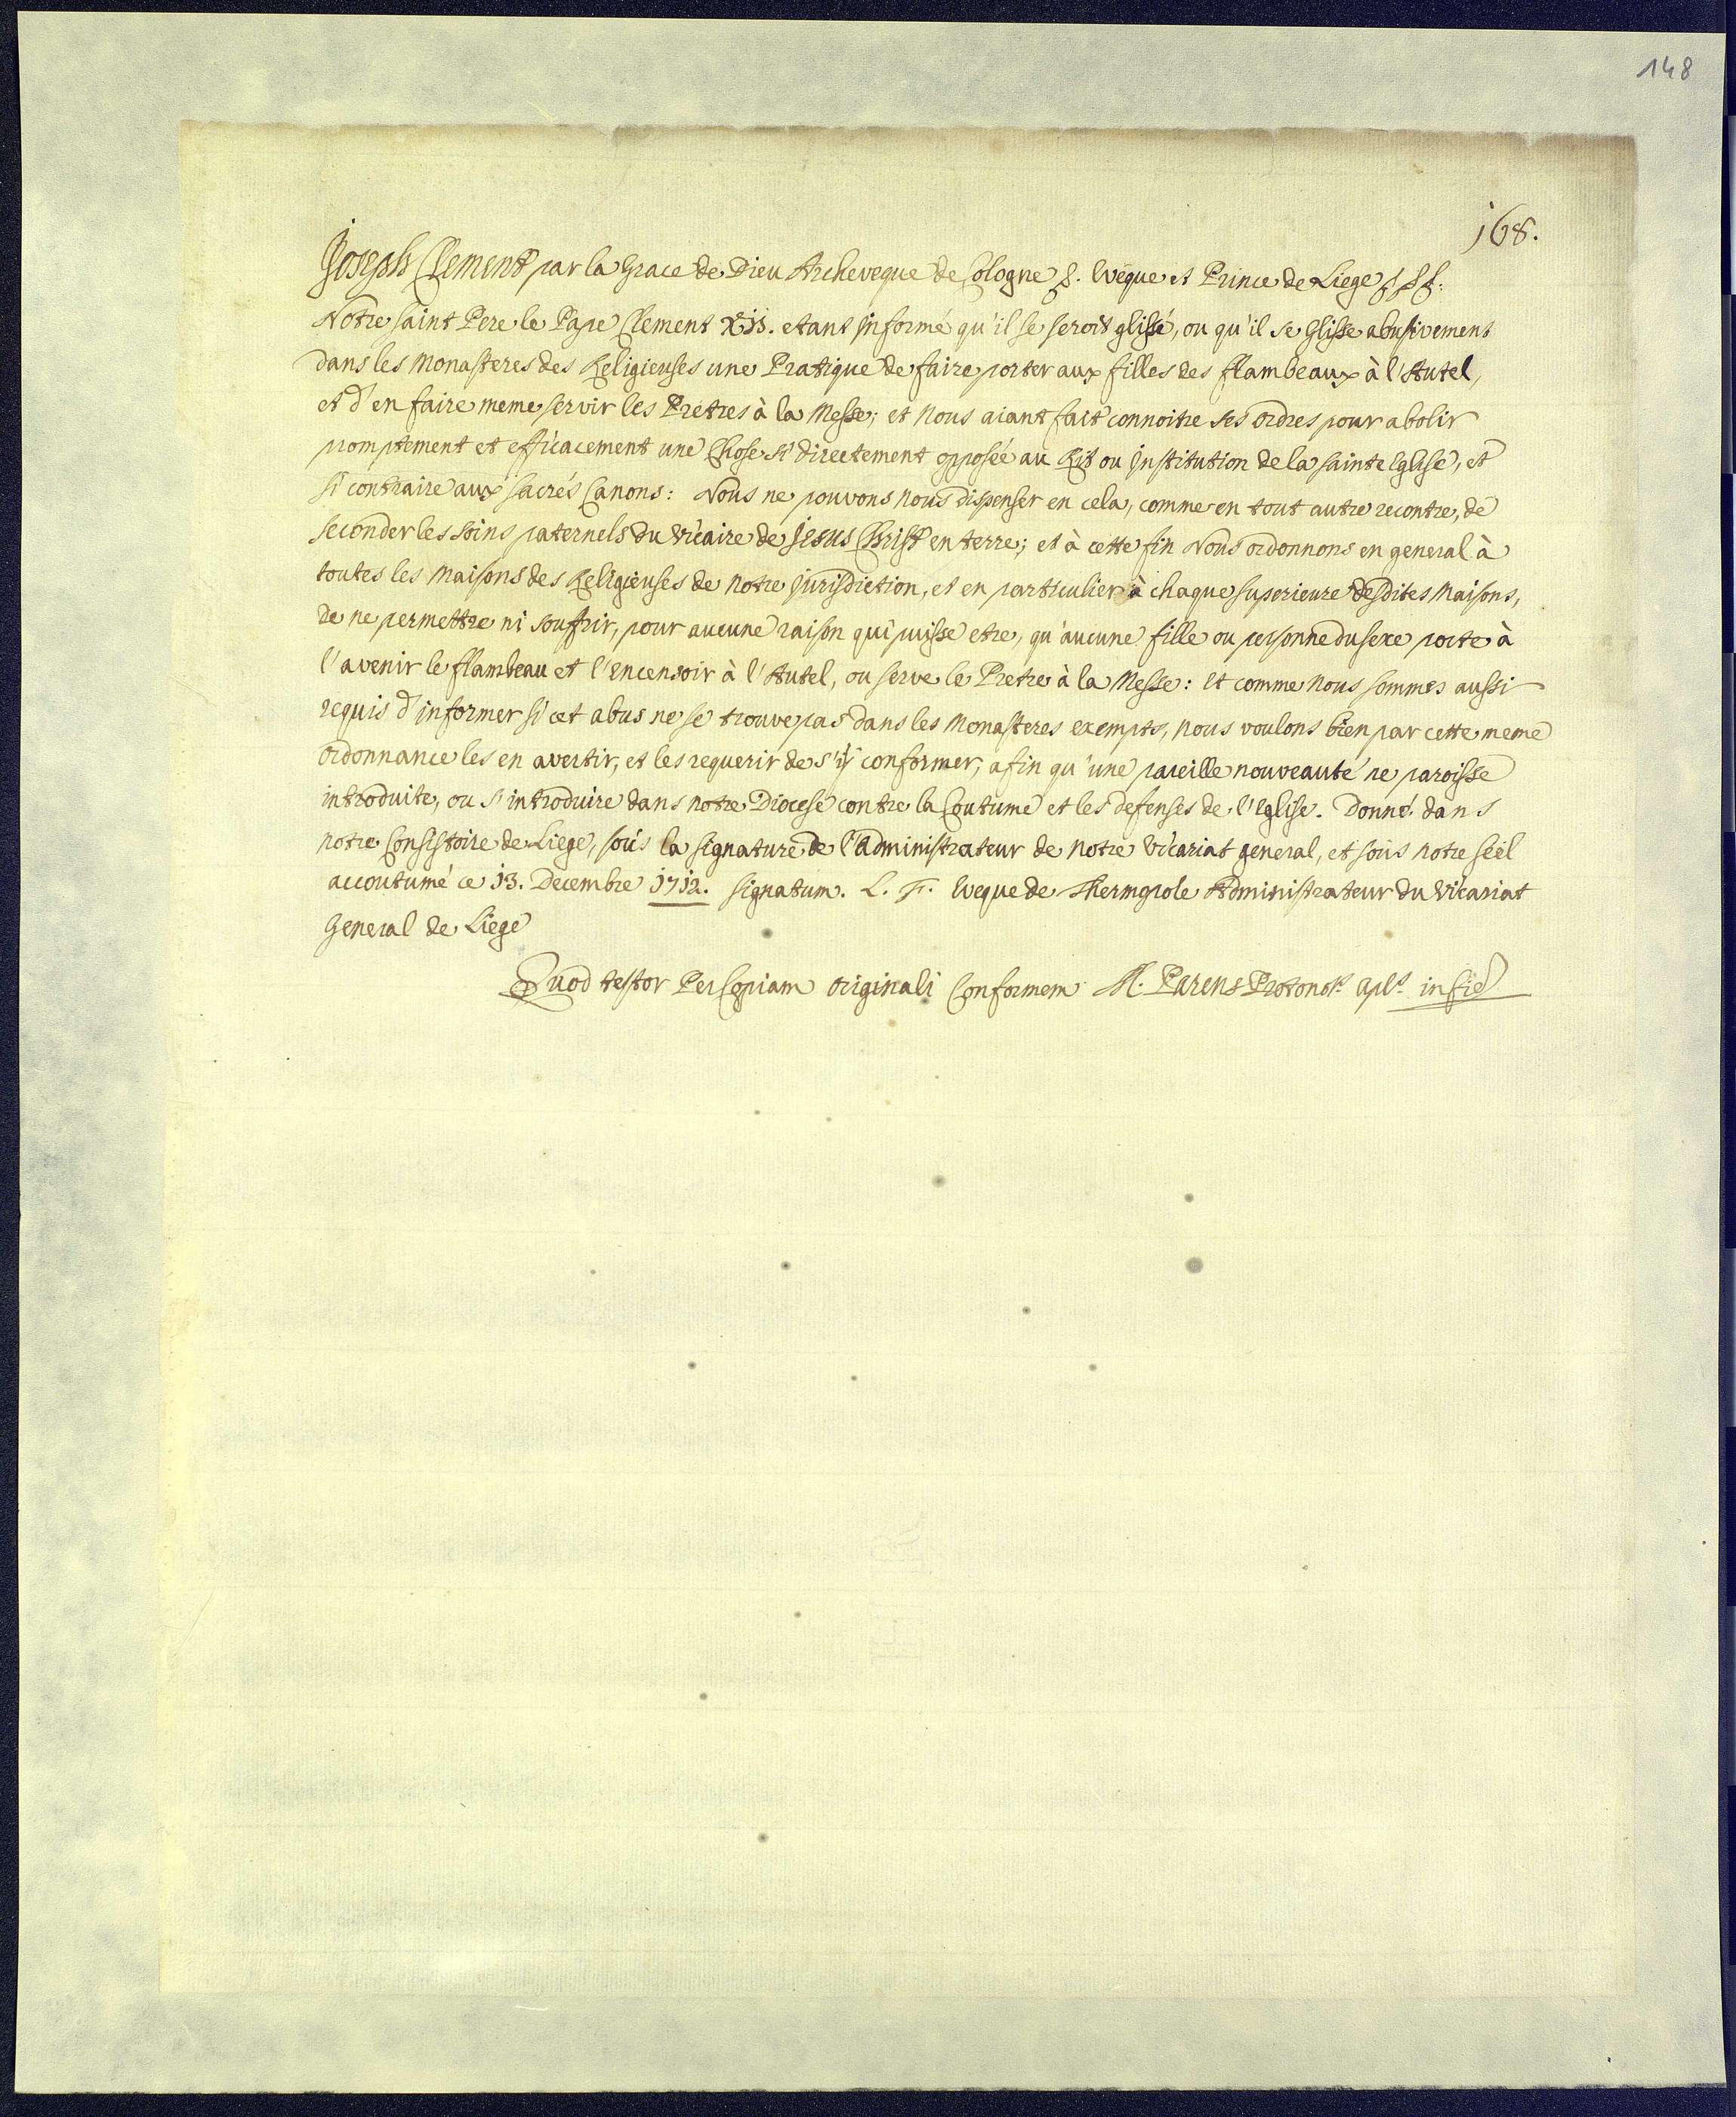 148
168.
Joseph Clement par la Grace de Dieu Archeveque de Cologne &. Eveque et Prince de Liege &&&.
Notre saint Pere le Pape Clement XII. etant informé qu'il se seroit glissé, ou qu'il se glisse abusivement
dans les Monasteres des Religieuses une Pratique de faire porter aux filles des flambeaux à l'Autel,
et d'en faire meme servir les Prétres à la Messe; et Nous aiant fait connoitre ses ordres pour abolir
promptement et efficacement une Chose si directement opposée au Rit ou Institution de la sainte Eglise, et
si contraire aux sacrés Canons: Nous ne pouvons nous dispenser en cela, comme en tout autre recontre, de
seconder les soins paternels du Vicaire de Jesus Christ en terre; et à cette fin Nous ordonnons en general à
toutes les Maisons des Religieuses de notre Jurisdiction, et en particulier à chaque superieure desdites Maisons,
de ne permettre ni souffrir, pour aucune raison qui puisse etre, qu'aucune fille ou personne du sexe porte à
l'avenir le flambeau et l'encensoir à l'Autel, ou serve le Pretre à la Messe: Et comme nous sommes aussi
requis d'informer si cet abus ne se trouve pas dans les Monasteres exempts, nous voulons bien par cette meme
ordonnance les en avertir, et les requerir de s'ÿ conformer, afin qu'une pareille nouveauté ne paroisse
introduite, ou s'introduire dans notre Diocese contre la Coutume et les defenses de l'Eglise. Donné dans
notre Consistoire de Liege, sous la signature de l'Administrateur de notre Vicariat general, et sous notre séel
accoutumé ce 13. Decembre 1712. signatum. L. F. Eveque de Thermople Administrateur du Vicariat
General de Liege
Quod testor Per Copiam originali Conformem M. Parens Protonot. aplus. in fid